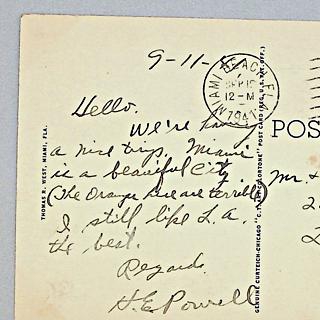 9-11-
MIAMI BEACH, FLA.
SEP 12
12 - M
1947
Hello.
We're having
a nice trip. Miami
is a beautiful city.
(The Oranges here are terrible)
I still like L.A.
the best.
Regards
H.E. Powell
THOMAS R. WEST, MIAMI, FLA.
GENUINE CURTEICH-CHICAGO "C.T. ART-COLORTONE" POST CARD (REG. U.S. PAT. OFF.)
POS
Mr. &